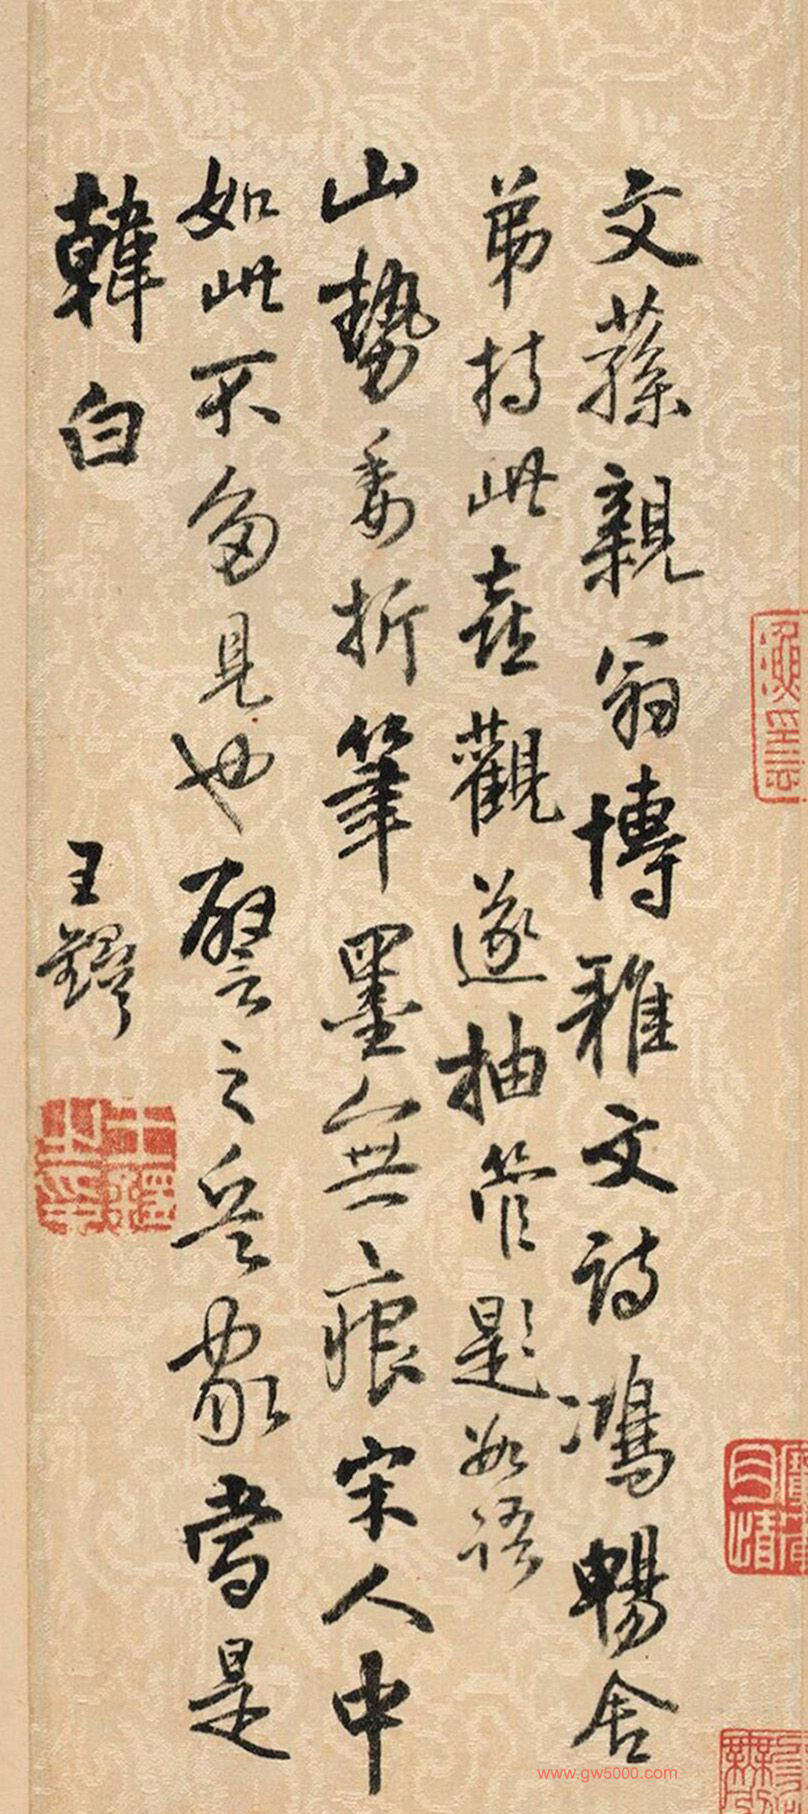 文蓀親翁博雅文詩鴻暢舍
弟持此喜觀遂抽管題數語
山勢委折筆墨無痕宋人中
如此不多見也譬之兵家當是
韓白
王鐸
www.gw5000.com